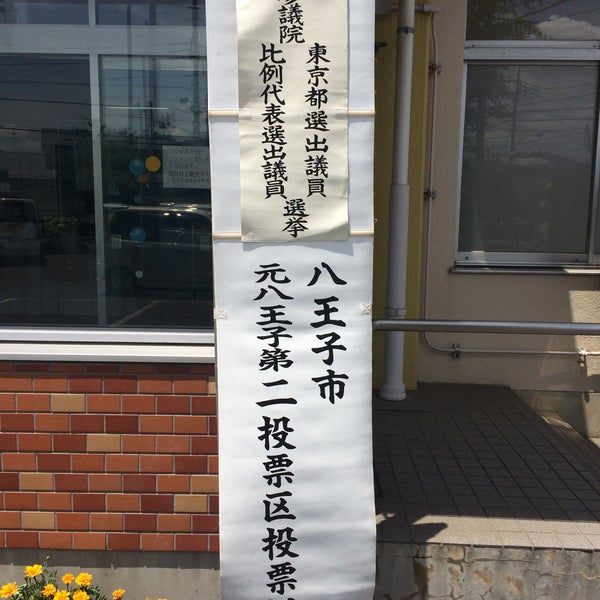 参議院
東京都選出議員
比例代表選出議員
選挙
八王子市
元八王子第二投票区投票